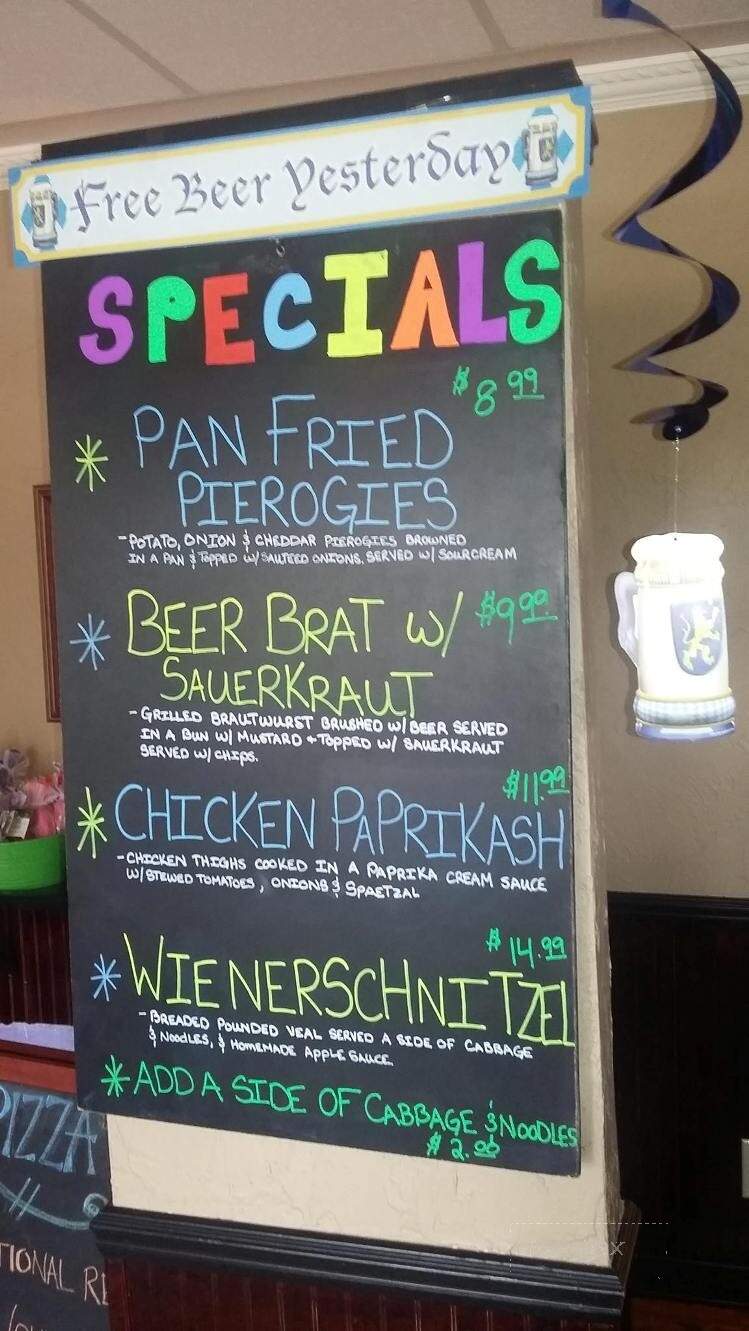 Free Beer Yesterday
SPECIALS
$8.99
PAN FRIED
PIEROGIES
-POTATO, ONION & CHEDDAR PIEROGIES BROWNED
IN A PAN & TOPPED W/ SAUTEED ONIONS. SERVED W/ SOURCREAM
BEER BRAT W/ $9.99
SAUERKRAUT
-GRILLED BRAUTWURST BRUSHED W/ BEER SERVED
IN A BUN W/ MUSTARD + TOPPED W/ SAUERKRAUT
SERVED W/ CHIPS.
$11.99
CHICKEN PAPRIKASH
-CHICKEN THIGHS COOKED IN A PAPRIKA CREAM SAUCE
W/ STEWED TOMATOES, ONIONS & SPAETZAL
$14.99
WIENERSCHNITZEL
-BREADED POUNDED VEAL SERVED A SIDE OF CABBAGE
& NOODLES, & HOMEMADE APPLE SAUCE.
ADD A SIDE OF CABBAGE & NOODLES
$2.00
PIZZA
TIONAL